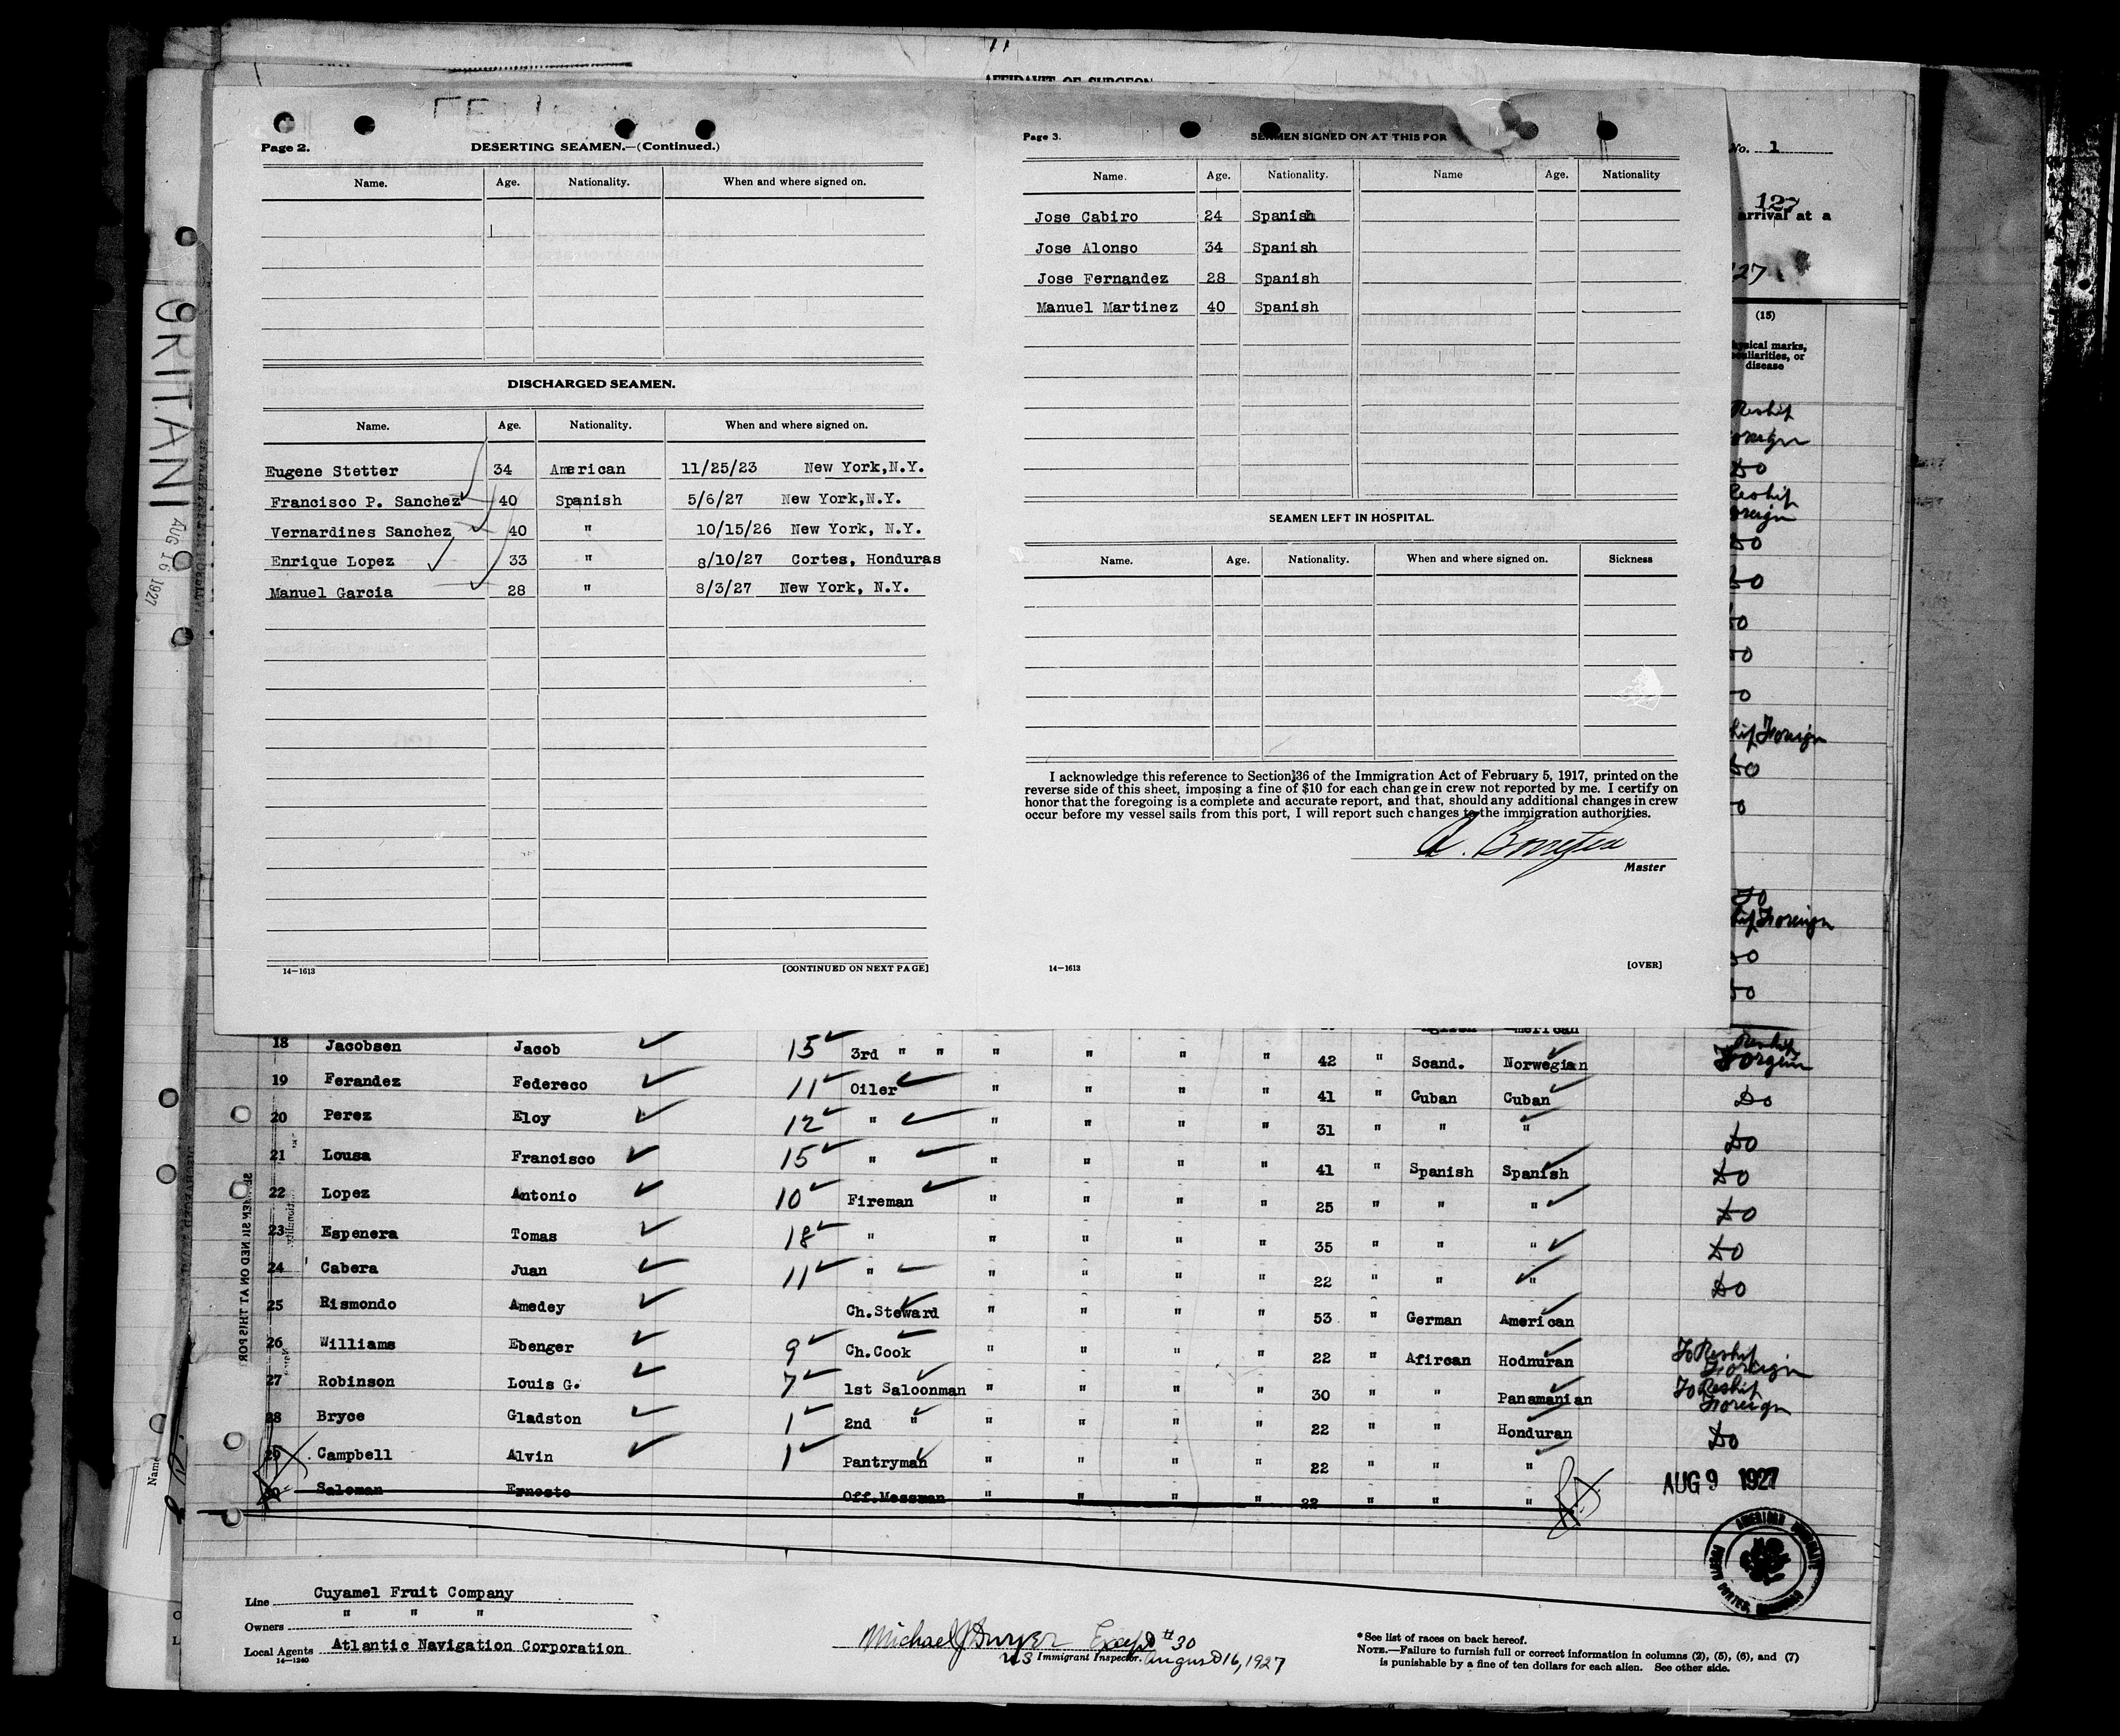 AFFIDAVIT OF SURGEON
Page 2.
DESERTING SEAMEN.—(Continued.)
Name. Age. Nationality. When and where signed on.
DISCHARGED SEAMEN.
Name. Age. Nationality. When and where signed on.
Eugene Stetter 34 American 11/25/23 New York,N.Y.
Francisco P. Sanchez 40 Spanish 5/6/27 New York,N.Y.
Vernardines Sanchez 40 " 10/15/26 New York, N.Y.
Enrique Lopez 33 " 8/10/27 Cortes, Honduras
Manuel Garcia 28 " 8/3/27 New York, N.Y.
14—1613 [CONTINUED ON NEXT PAGE]
Page 3. SEAMEN SIGNED ON AT THIS POR
Name. Age. Nationality. Name Age. Nationality
Jose Cabiro 24 Spanish
Jose Alonso 34 Spanish
Jose Fernandez 28 Spanish
Manuel Martinez 40 Spanish
SEAMEN LEFT IN HOSPITAL.
Name. Age. Nationality. When and where signed on. Sickness
I acknowledge this reference to Section 36 of the Immigration Act of February 5, 1917, printed on the
reverse side of this sheet, imposing a fine of $10 for each change in crew not reported by me. I certify on
honor that the foregoing is a complete and accurate report, and that, should any additional changes in crew
occur before my vessel sails from this port, I will report such changes to the immigration authorities.
Master
14—1613 [OVER]
No. 1
127
arrival at a
27
(15)
marks,
or
disease
Reship
Foreign
Do
Reship
Foreign
Do
Do
Do
Do
Do
Foreign
Do
Do
Do
Foreign
Do
Do
ORITANI
AUG 16 1927
18 Jacobsen Jacob 15 3rd " " " " " " 42 " Scand. Norwegian Reship Foreign
19 Ferandez Federeco 11 Oiler " " " " 41 " Cuban Cuban Do
20 Perez Eloy 12 " " " " " 31 " " " Do
21 Lousa Francisco 15 " " " " " 41 " Spanish Spanish Do
22 Lopez Antonio 10 Fireman " " " " 25 " " " Do
23 Espenera Tomas 18 " " " " " 35 " " " Do
24 Cabera Juan 11 " " " " " 22 " " " Do
25 Rismondo Amedey Ch.Steward " " " " 53 " German American
26 Williams Ebenger 9 Ch.Cook " " " " 22 " Afircan Hodnuran To Reship Foreign
27 Robinson Louis G. 7 1st Saloonman " " " " 30 " " Panamanian To Reship Foreign
28 Bryce Gladston 1 2nd " " " " " 22 " " Honduran Do
29 Campbell Alvin 1 Pantryman " " " " 22 " " "
30 Saloman Ernesto Off.Messman " " " " 22 " " "
AUG 9 1927
AMERICAN CONSULATE
PUERTO CORTES, HONDURAS
Line Cuyamel Fruit Company
Owners " " "
Local Agents Atlantic Navigation Corporation
14—1240
Michael J Dwyer Except #30
US Immigrant Inspector. August 16, 1927
* See list of races on back hereof.
NOTE.—Failure to furnish full or correct information in columns (2), (5), (6), and (7)
is punishable by a fine of ten dollars for each alien. See other side.